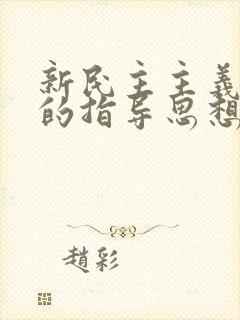 新民主主義
的指导思想
趙彩